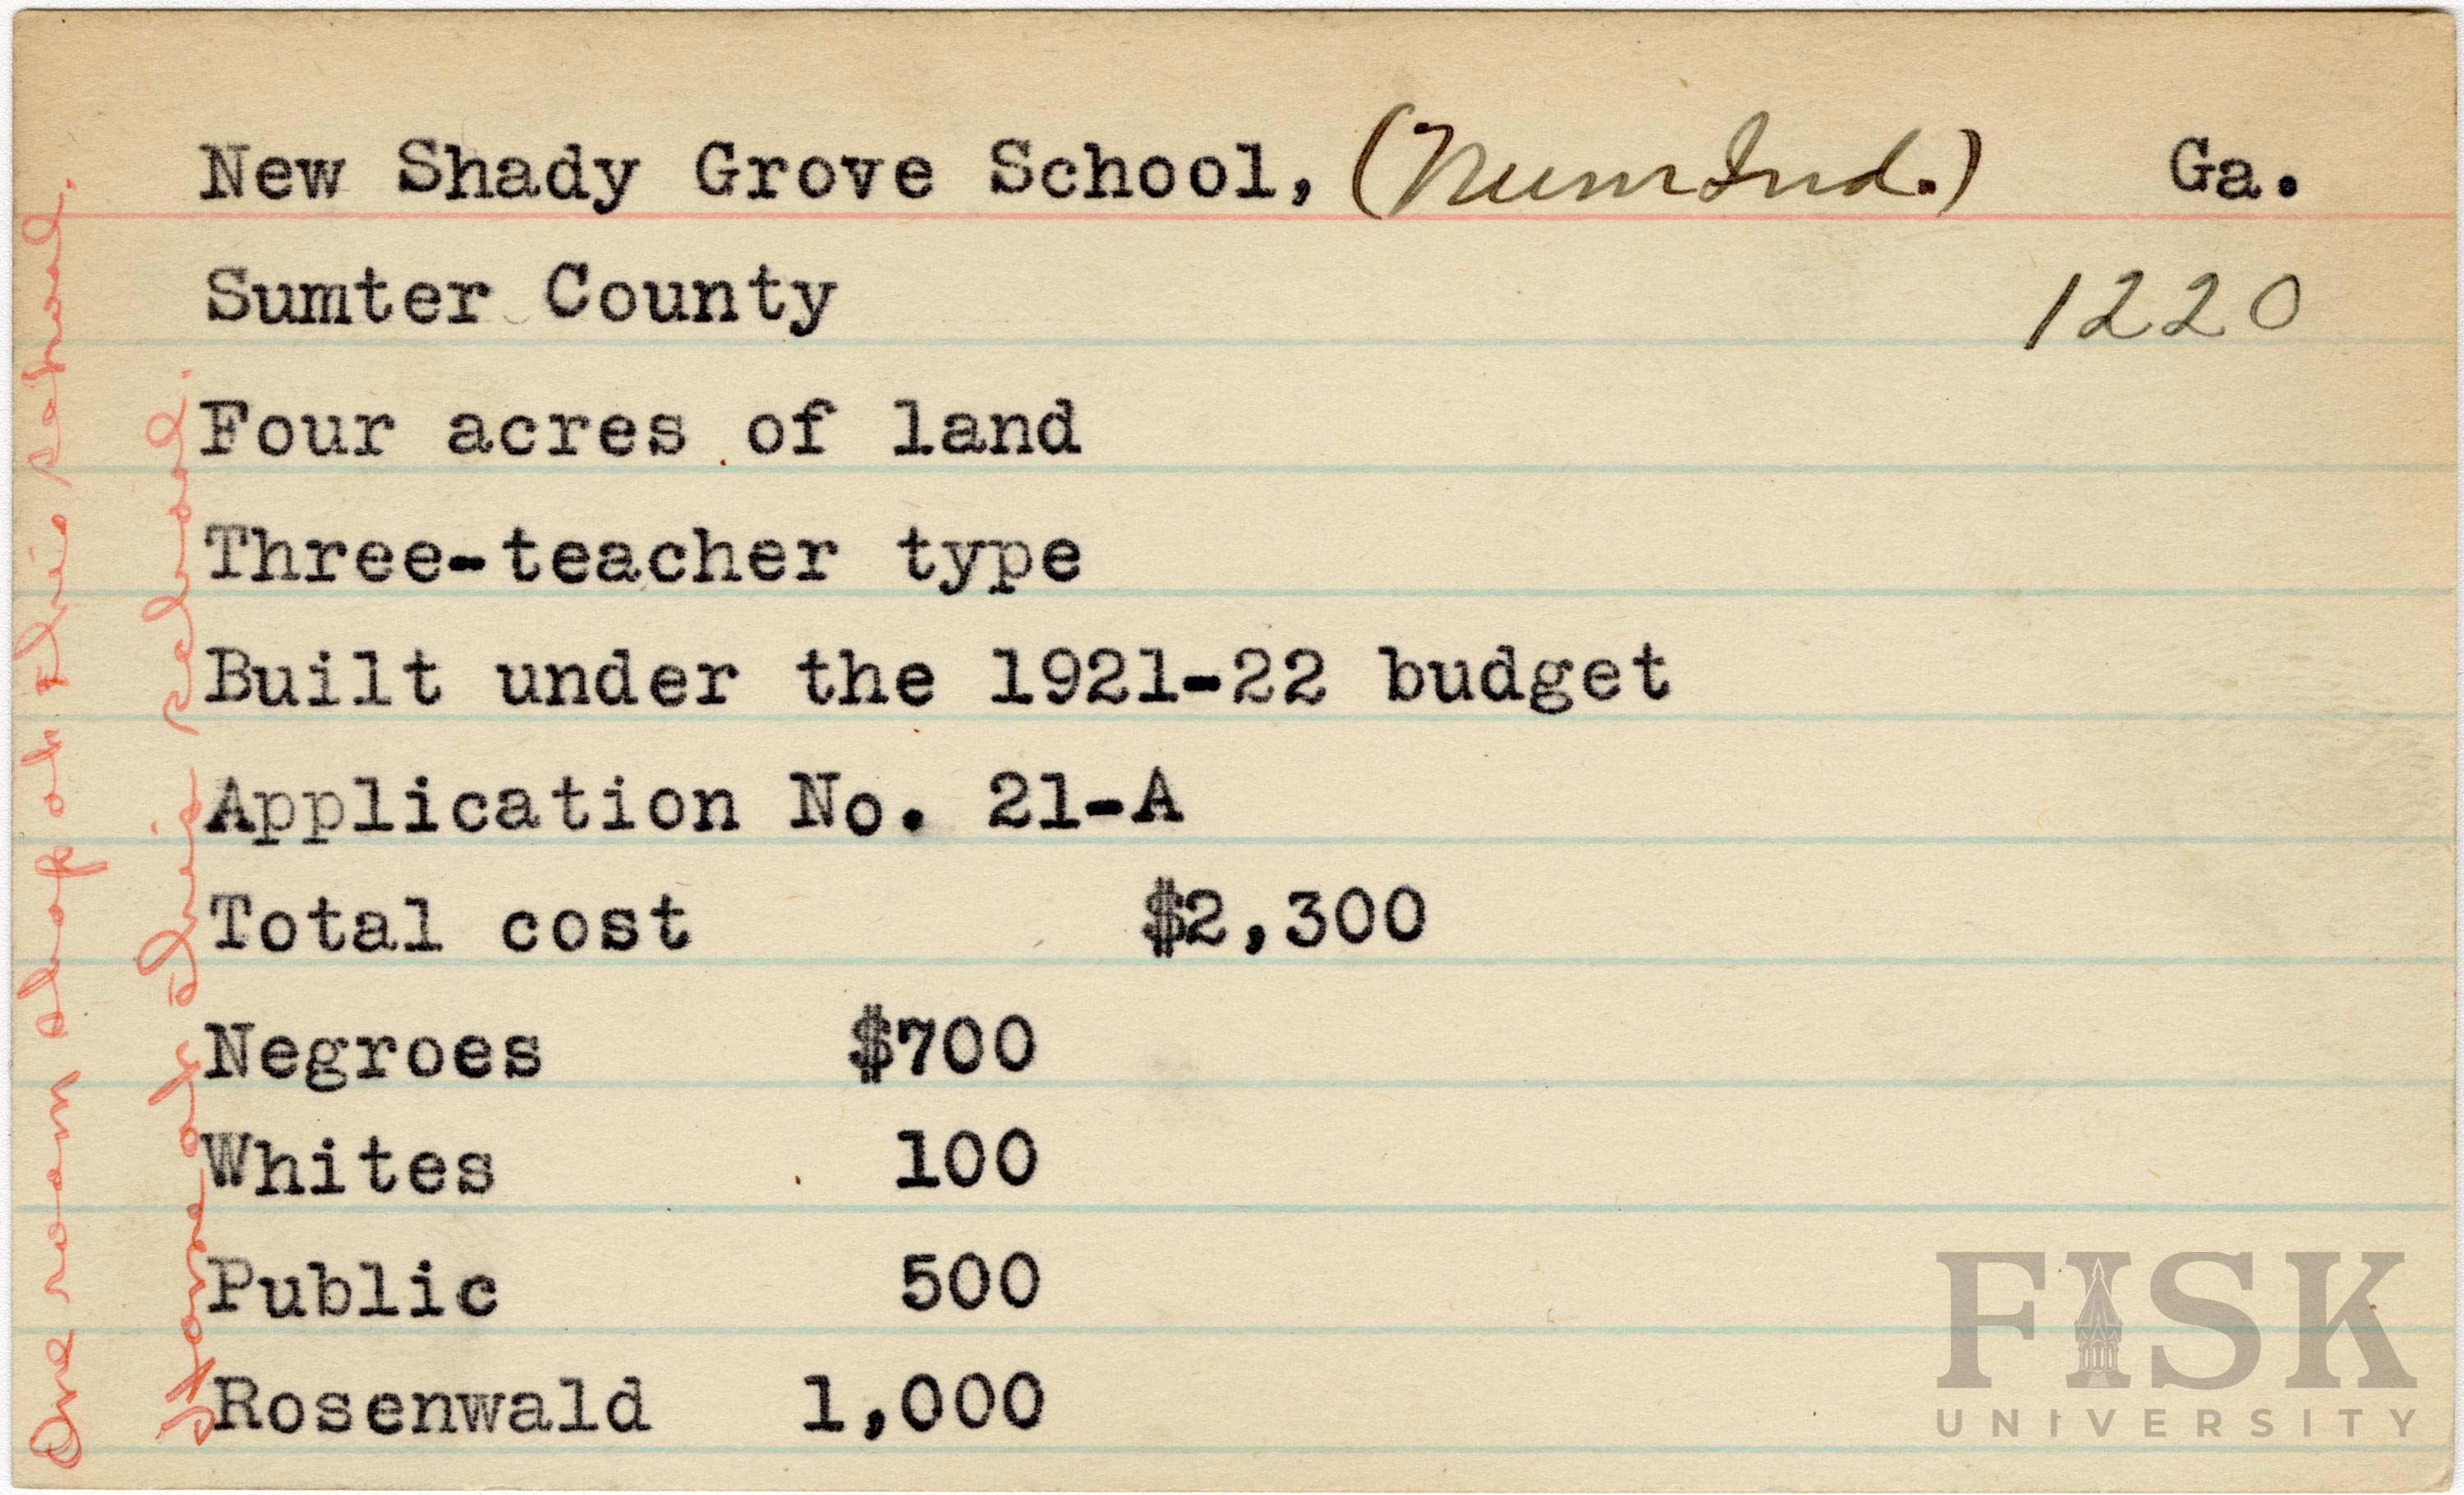 New Shady Grove School, (Num Ind.) Ga.
Sumter County 1220
Four acres of land
Three-teacher type
Built under the 1921-22 budget
Application No. 21-A
Total cost $2,300
Negroes $700
Whites 100
Public 500
Rosenwald 1,000
One room shop at this school.
at this school.
FISK
UNIVERSITY